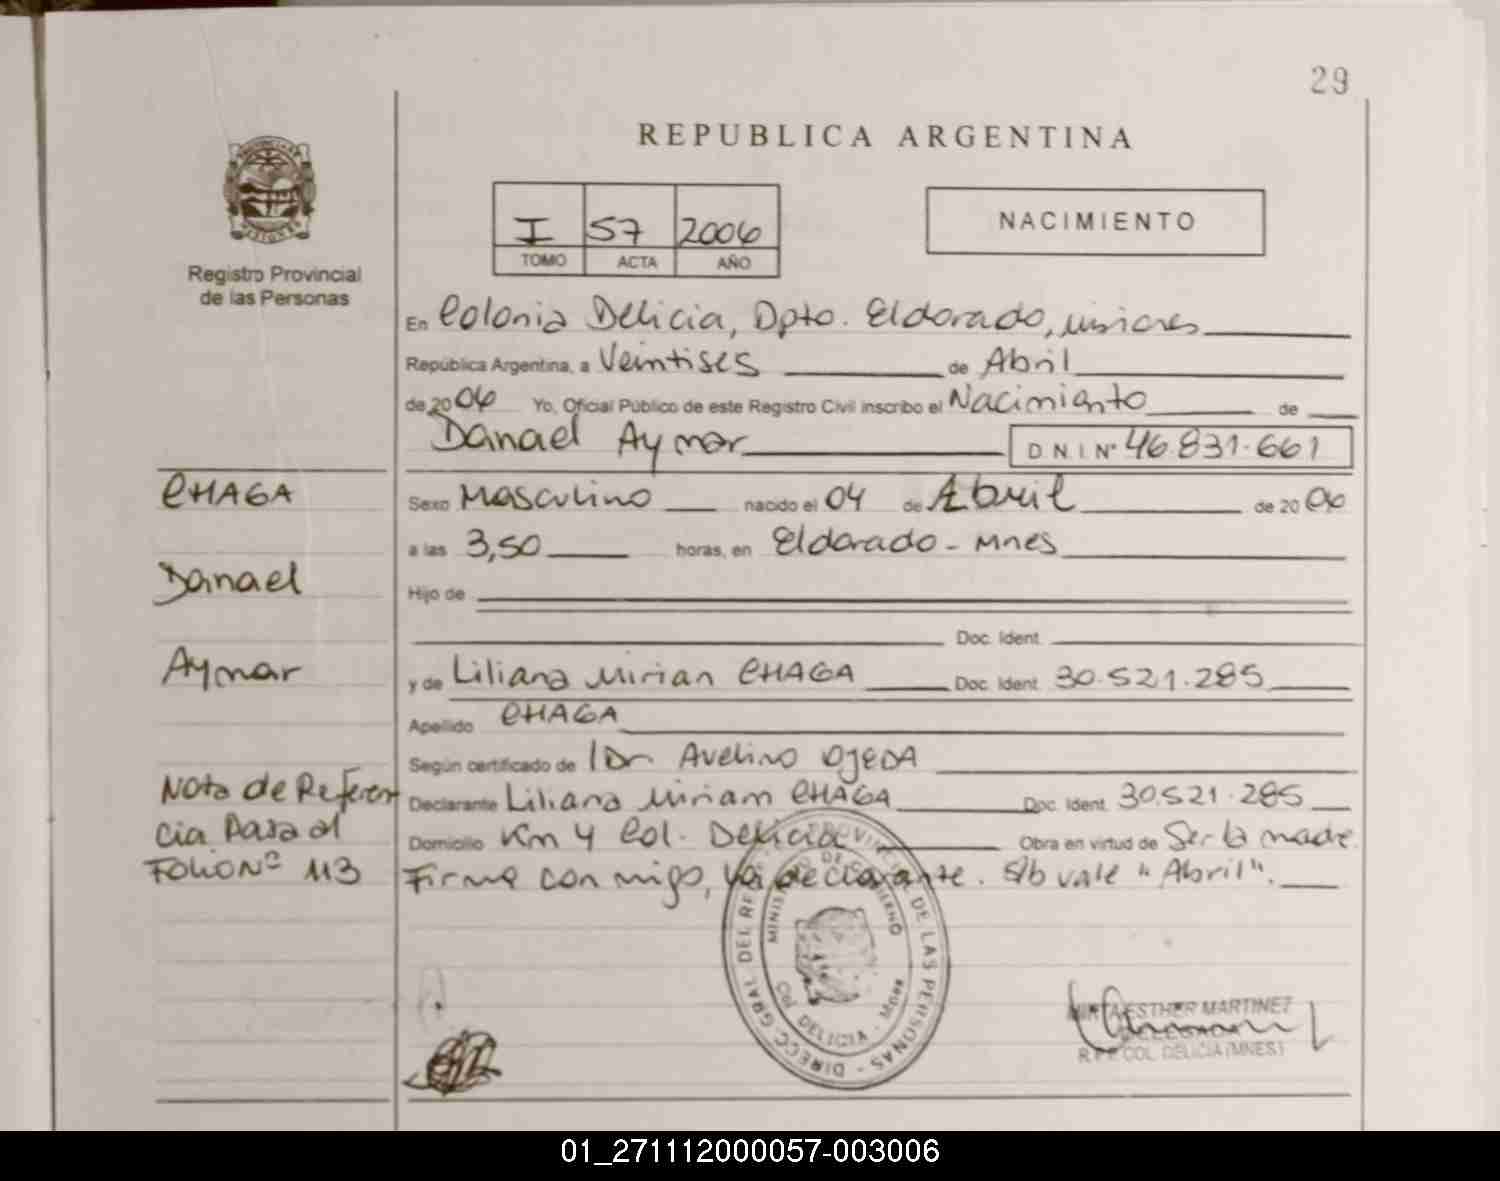 29
REPUBLICA ARGENTINA
I 57 2006
TOMO ACTA AÑO
NACIMIENTO
Registro Provincial
de las Personas
En Colonia Delicia, Dpto. Eldorado, Misiones
República Argentina, a Veintises de Abril
de 2006 Yo, Oficial Público de este Registro Civil inscribo el Nacimiento de
Danael Aymar D N I Nº 46.831.661
CHAGA
Danael
Aymar
Nota de Referen
cia Pasa al
Folio Nº 113
Sexo Masculino nacido el 04 de Abril de 2006
a las 3,50 horas, en Eldorado - Mnes
Hijo de
Doc. Ident.
y de Liliana Mirian CHAGA Doc. Ident. 30.521.285
Apellido CHAGA
Según certificado de Dr. Avelino OJEDA
Declarante Liliana Miriam CHAGA Doc. Ident. 30.521.285
Domicilio Km 4 Col. Delicia Obra en virtud de Ser la madre.
Firma con migo, la declarante. S/b vale "Abril".
DIRECC GRAL DEL REG PROVINCIAL DE LAS PERSONAS
MINISTERIO DE GOBIERNO
Col DELICIA - Mnes
MIRTA ESTHER MARTINEZ
DELEGADA
R.P.P. COL. DELICIA (MNES)
01_271112000057-003006